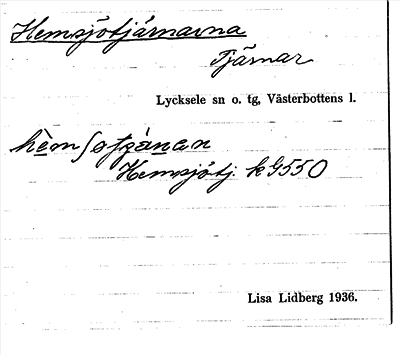 Hemsjötjärnarna
Tjärnar
Lycksele sn o. tg, Västerbottens l.
Hemsjötj. kG550
Lisa Lidberg 1936.